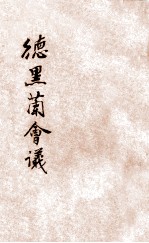 德黑蘭會議